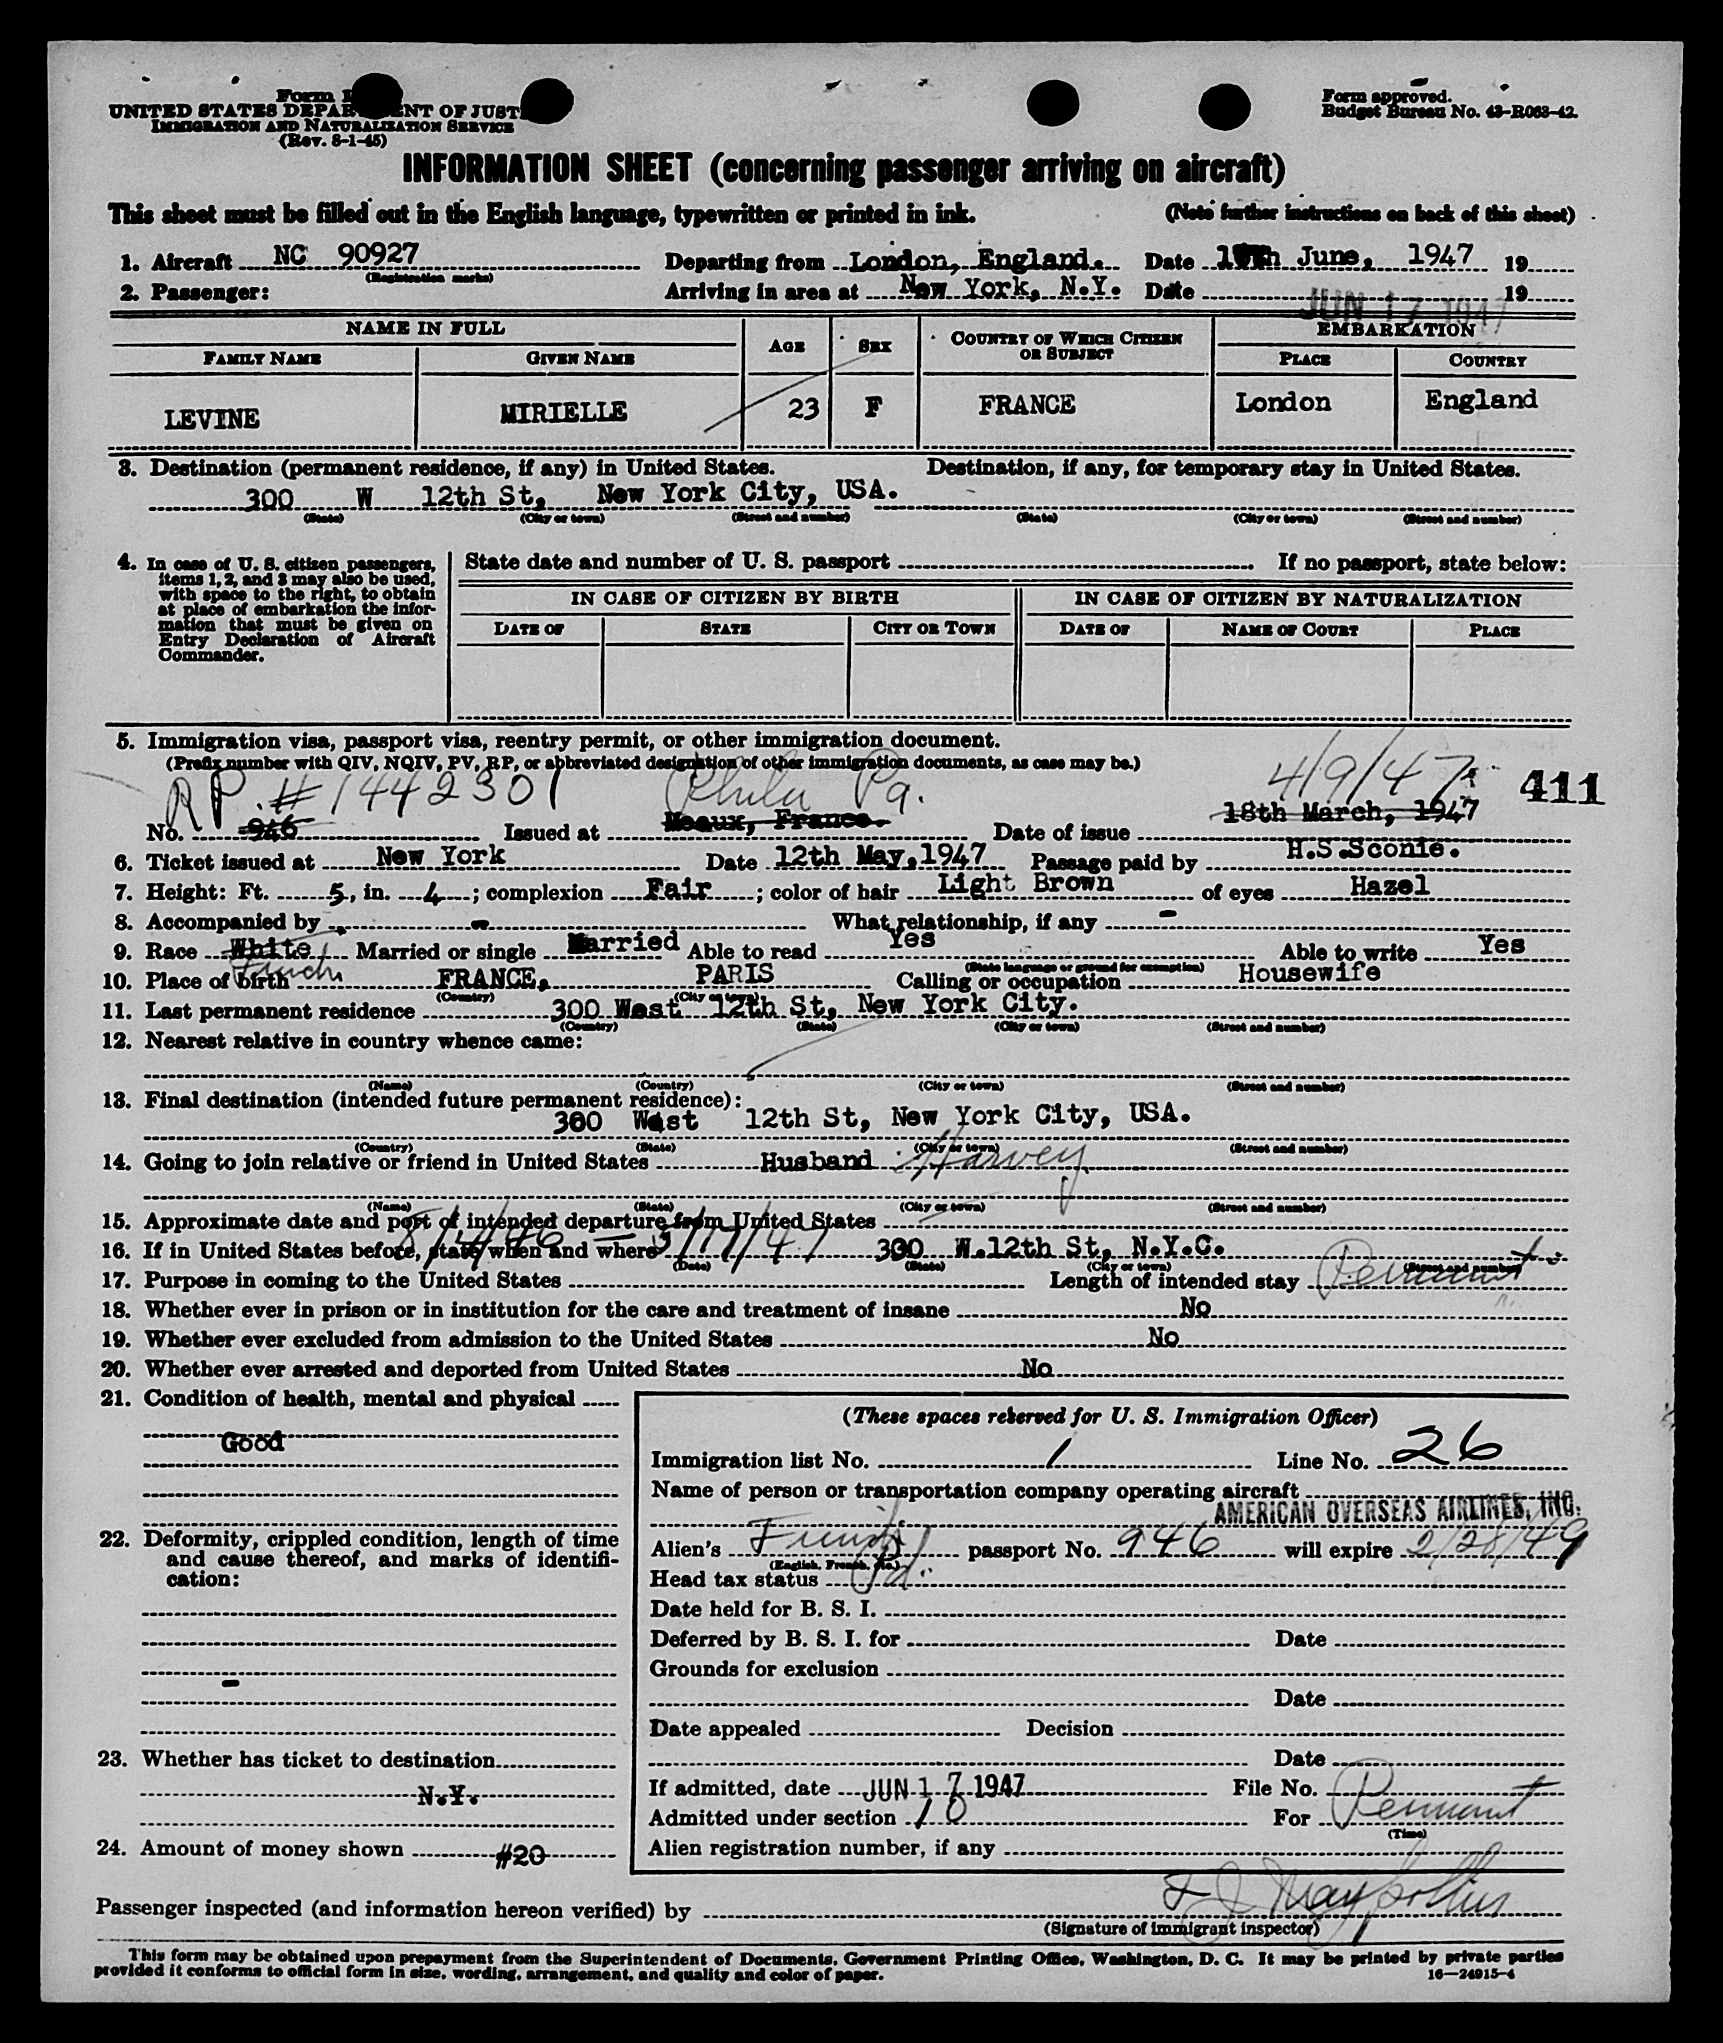 Form
UNITED STATES DEPARTMENT OF JUSTICE
IMMIGRATION AND NATURALIZATION SERVICE
(Rev. 8-1-45)
Form approved.
Budget Bureau No. 43-R063-42.
INFORMATION SHEET (concerning passenger arriving on aircraft)
This sheet must be filled out in the English language, typewritten or printed in ink. (Note further instructions on back of this sheet)
1. Aircraft NC 90927 Departing from London, England. Date June, 1947 19
(Registration marks)
2. Passenger: Arriving in area at New York, N.Y. Date JUN 17 1947 19
NAME IN FULL AGE SEX COUNTRY OF WHICH CITIZEN OR SUBJECT EMBARKATION
FAMILY NAME GIVEN NAME PLACE COUNTRY
LEVINE MIRIELLE 23 F FRANCE London England
3. Destination (permanent residence, if any) in United States. Destination, if any, for temporary stay in United States.
300 W 12th St, New York City, USA.
(State) (City or town) (Street and number) (State) (City or town) (Street and number)
4. In case of U. S. citizen passengers, items 1, 2, and 3 may also be used, with space to the right, to obtain at place of embarkation the information that must be given on Entry Declaration of Aircraft Commander.
State date and number of U. S. passport If no passport, state below:
IN CASE OF CITIZEN BY BIRTH IN CASE OF CITIZEN BY NATURALIZATION
DATE OF STATE CITY OR TOWN DATE OF NAME OF COURT PLACE
5. Immigration visa, passport visa, reentry permit, or other immigration document.
(Prefix number with QIV, NQIV, PV, RP, or abbreviated designation of other immigration documents, as case may be.)
RP # 1442301 Phila Pa. 4/9/47 411
No. 946 Issued at Meaux, France. Date of issue 18th March, 1947
6. Ticket issued at New York Date 12th May, 1947 Passage paid by H.S.Sconie.
7. Height: Ft. 5, in. 4; complexion Fair; color of hair Light Brown of eyes Hazel
8. Accompanied by - What relationship, if any -
9. Race White French Married or single Married Able to read Yes Able to write Yes
(State language or ground for exemption)
10. Place of birth FRANCE, PARIS Calling or occupation Housewife
(Country) (City or town)
11. Last permanent residence 300 West 12th St, New York City.
(Country) (State) (City or town) (Street and number)
12. Nearest relative in country whence came:
(Name) (Country) (City or town) (Street and number)
13. Final destination (intended future permanent residence):
300 West 12th St, New York City, USA.
(Country) (State) (City or town) (Street and number)
14. Going to join relative or friend in United States Husband Harvey
(Name) (State) (City or town) (Street and number)
15. Approximate date and port of intended departure from United States
16. If in United States before, state when and where 300 W.12th St, N.Y.C.
(Date) (State) (City or town) (Street and number)
17. Purpose in coming to the United States Length of intended stay Permanent
18. Whether ever in prison or in institution for the care and treatment of insane No
19. Whether ever excluded from admission to the United States No
20. Whether ever arrested and deported from United States No
21. Condition of health, mental and physical
Good
22. Deformity, crippled condition, length of time and cause thereof, and marks of identification:
-
23. Whether has ticket to destination
N.Y.
24. Amount of money shown #20
(These spaces reserved for U. S. Immigration Officer)
Immigration list No. 1 Line No. 26
Name of person or transportation company operating aircraft
AMERICAN OVERSEAS AIRLINES, INC.
Alien's French passport No. 946 will expire 2/28/49
(English, French, etc.)
Head tax status Pd.
Date held for B. S. I.
Deferred by B. S. I. for Date
Grounds for exclusion
Date
Date appealed Decision
Date
If admitted, date JUN 17 1947 File No.
Admitted under section 10 For Permanent
(Time)
Alien registration number, if any
Passenger inspected (and information hereon verified) by
(Signature of immigrant inspector)
This form may be obtained upon prepayment from the Superintendent of Documents, Government Printing Office, Washington, D. C. It may be printed by private parties
provided it conforms to official form in size, wording, arrangement, and quality and color of paper. 16—24915-4